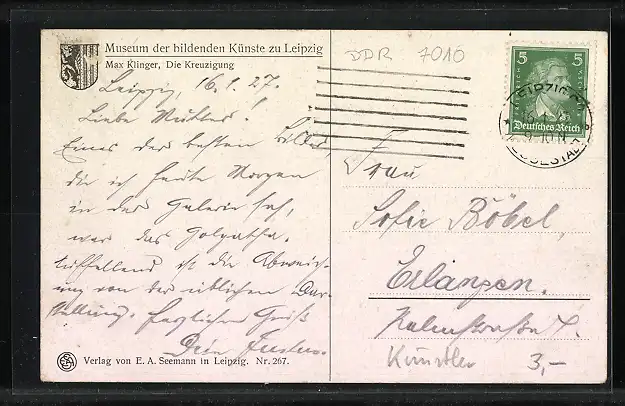 Museum der bildenden Künste zu Leipzig
Max Klinger, Die Kreuzigung
Leipzig, 16.1.27.
Liebe Mutter!
Eines der besten Bilder,
die ich heute Morgen
in der Galerie sah,
war das Golgatha.
Auffallend ist die Abweich-
ung von der üblichen Dar-
stellung. Herzlichen Gruß
Dein
Verlag von E. A. Seemann in Leipzig. Nr. 267.
DDR 7010
5 5
Deutsches Reich
LEIPZIG
Frau
Sofie Böbel,
Erlangen.
Künstler 3,-